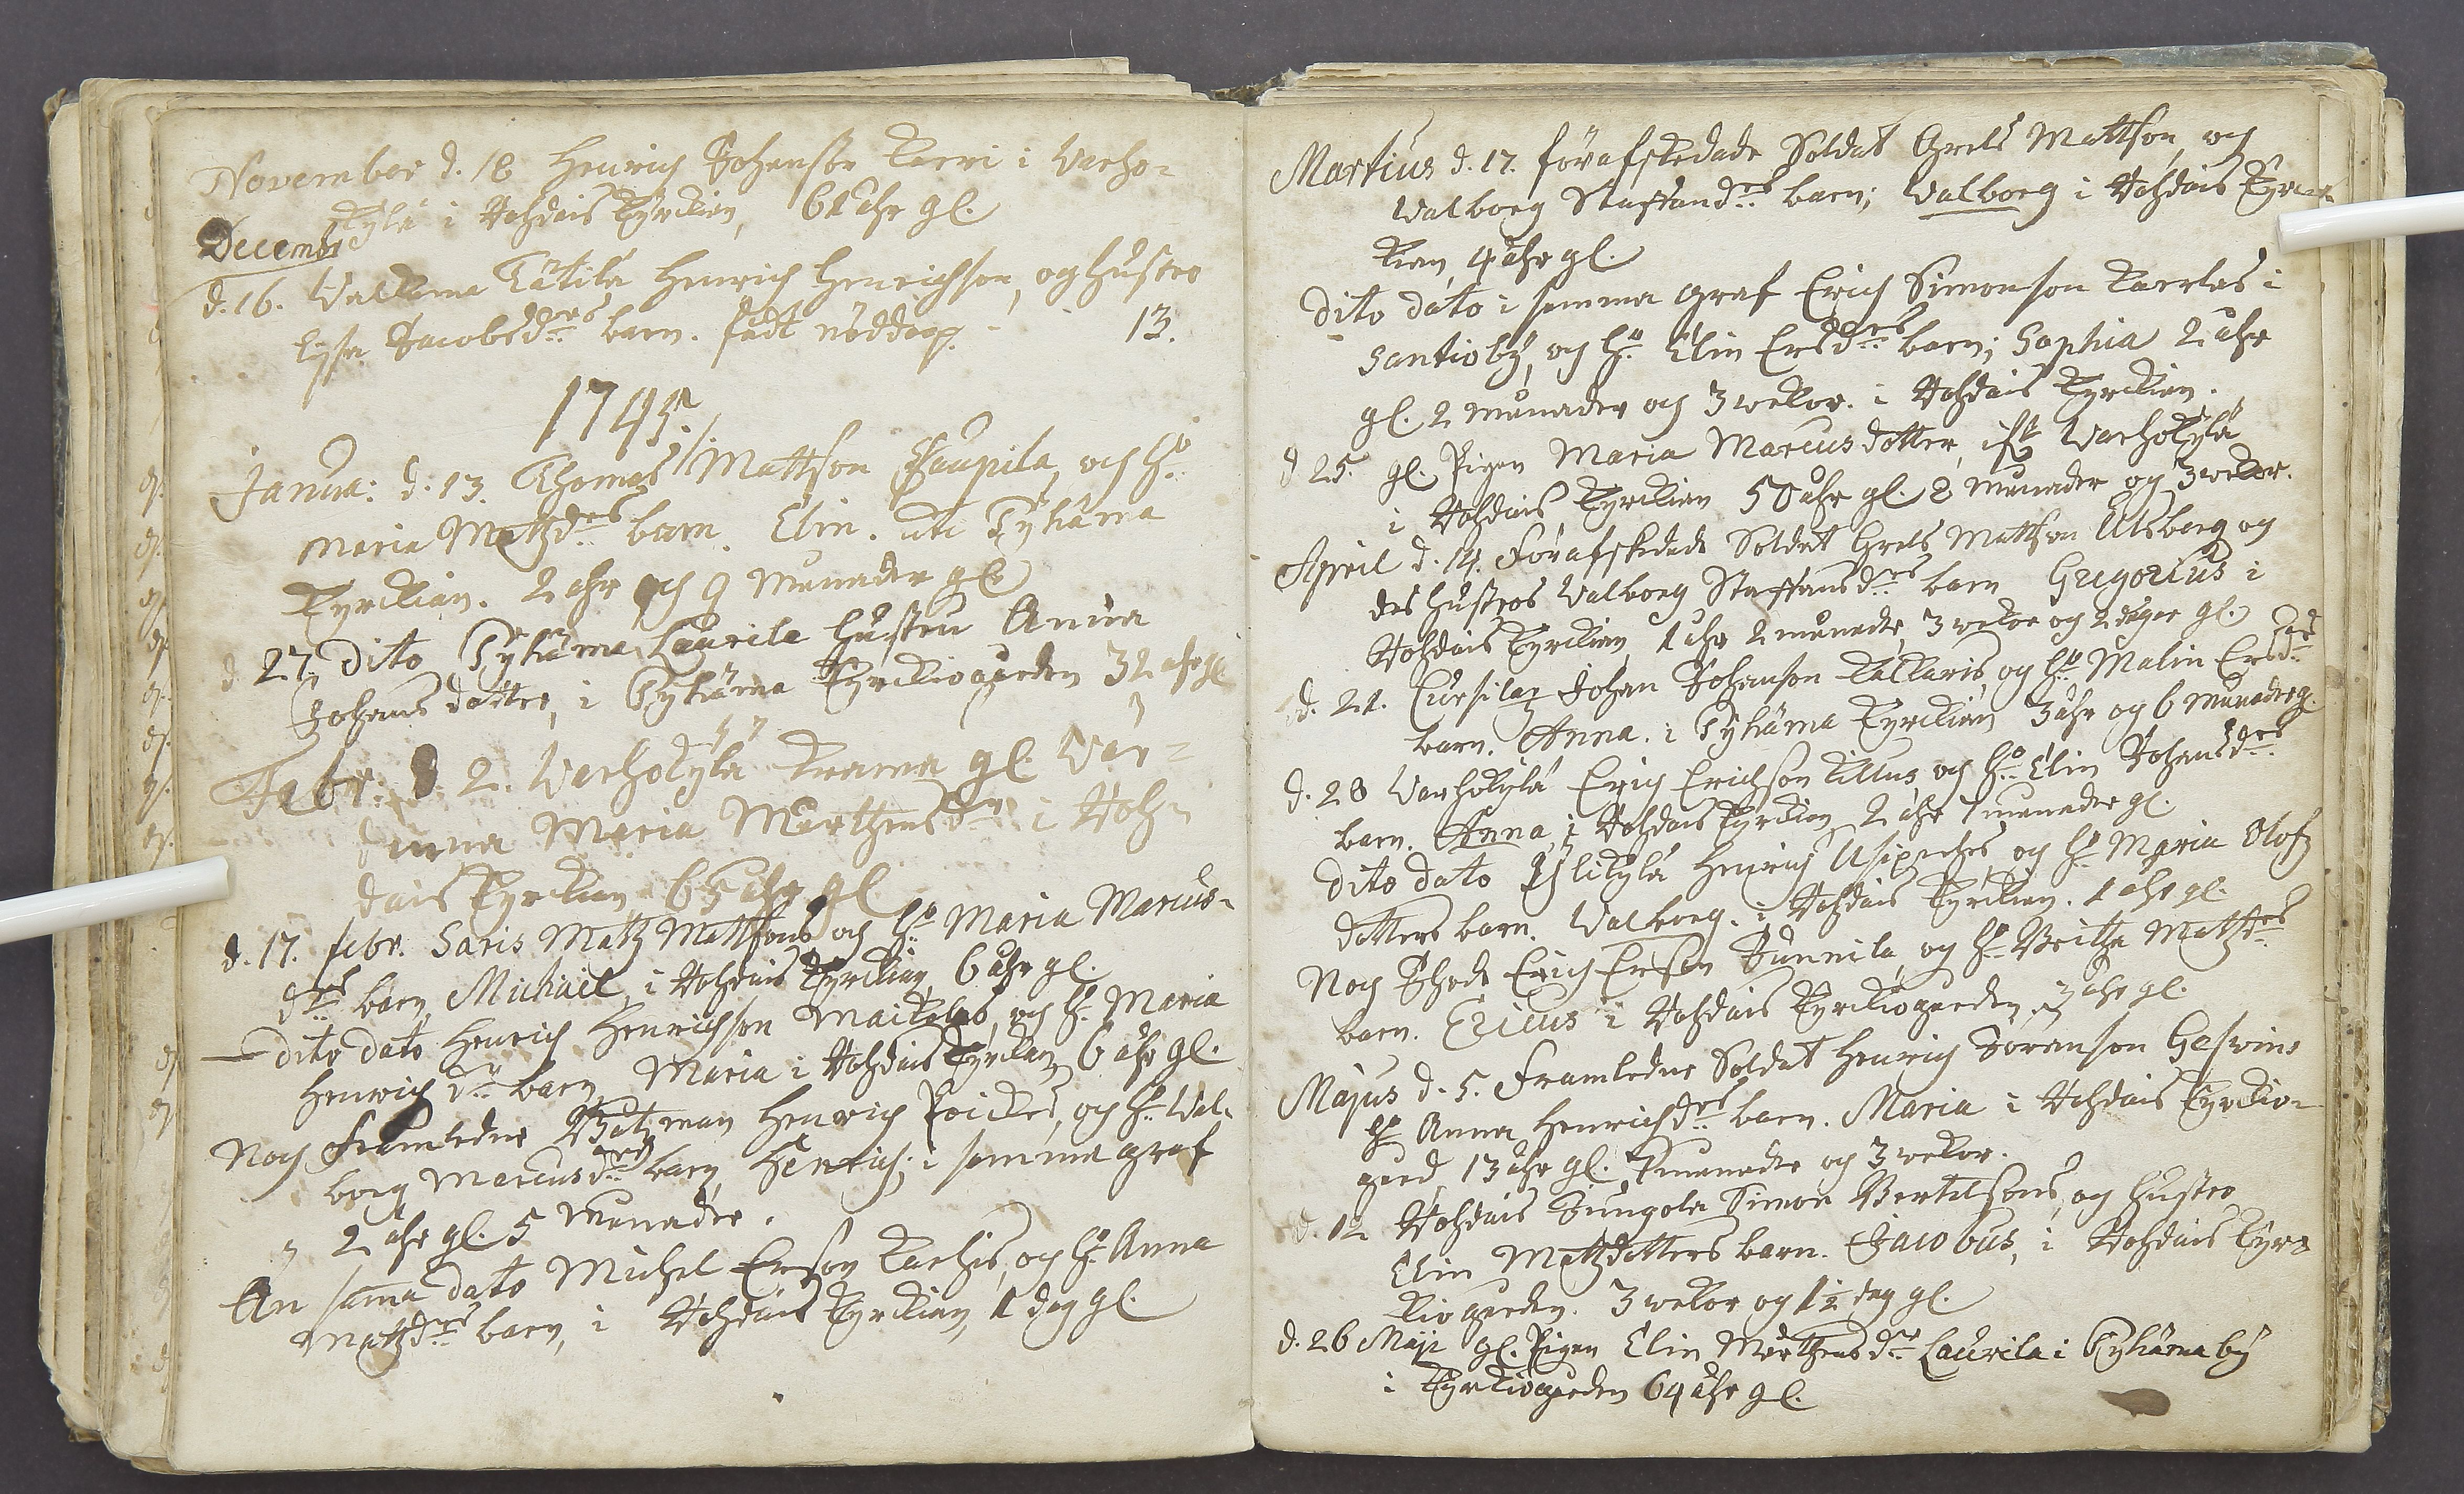 November d. 18 Henrich Johansson Karri i Varho=
kylä i Vohdais Kyrckian, 61 åhr gl.
Decembr
d. 16. Valkama Tätilä Henrich Henrichson, och hustro
Lysa Jacobsdrs barn. född nöddöpt. 13.
1745.
Janua: d. 13. Thomas Mattson Kaupila, och ho
Maria Matzdrs barn. Elin. uti Tyhäma
Kyrckian. 2 åhr och 9 Månader gl.
d 27 dito Tyhäma Laurila hustru Anna
Johansdotter, i Tyhäma Kyrckiogården 32 åhr gl
Febr: d 2. Varhokylä Krama gl. Vär=
dinna Maria Mårthensdr i Voh=
dais Kyrckian 65 åhr gl.
d. 17. febr. Saris Matz Mattsons och ho Maria Marcus=
drs barn Michäel, i Vohdais Kyrckian, 6 åhr gl.
dito dato Henrich Henrichson Maikolas, och ho Maria
Henrichdrs barn, Maria i Vohdais Kyrckian, 6 åhr gl.
Noch Framledne Båtzman Henrich Poickes, och ho Val=
borg Marcusdrs barn Henrich; i samma graf
2 åhr gl. 5 Månader.
An sama dato Michel Erson Karhis, och ho Anna
Matzdrs barn, i Vohdais Kyrckian, 1 dag gl.
Martius d. 17. förafskedade Soldat Grels Mattson, och
Valborg Staffansdrs barn; Valborg i Vohdais Kyrc=
kian, 4 åhr gl.
Dito dato i samma graf Erich Simonson Kaerlas i
Santioby, och ho Elin Ersdrs barn; Sophia 2 åhr
gl. 2 månader och 3 wekor. i Vohdais Kyrckian.
d 25. gl. Pigan Maria Marcusdotter, ifr Varhokylä
i Vohdais Kyrckian 50 åhr gl. 8 månader och 3 wekor.
April d. 14. Förafskedade Soldat Grels Mattson Ulsberg och
des hustros Valborg Staffansdrs barn Gregorius i
Vohdais Kyrckian, 1 åhr 2 månader, 3 wekor och 2 dagar gl.
d. 21. Johan Johanson Kallaris, och ho Malin Ersdrs
barn. Anna. i Tyhäma Kyrckian 3 åhr och 6 månader g.
d. 28 Varhokylä Erich Erichson Killus, och ho Elin Johansdrs
barn. Anna, i Vohdais Kyrckian, 2 åhr 1 månader gl.
Dito dato Ylikylä Henrich och ho Maria Olofz
dotters barn. Valborg. i Vohdais Kyrckian. 1 åhr gl.
Noch Erich Erson Junnila, och ho Britha Matzdrs
barn. Ericus i Vohdais Kyrckiogården, 3 åhr gl.
Majus d. 5. Framledne Soldat Henrich Göranson
ho Anna Henrichdrs barn. Maria i Vohdais Kyrckio=
gård, 13 åhr gl. månader och 3 wekor.
d. 12 Vohdais Jungola Simon Bertilsons, och hustro
Elin Matzdotters barn. Jacobus, i Vohdais Kyrc
kiogården. 3 wekor och 1½ dag gl.
d. 26 Maji gl. Pigan Elin Mårthensdr Laurila i Tyhäma by
i Kyrckiogården 64 åhr gl.